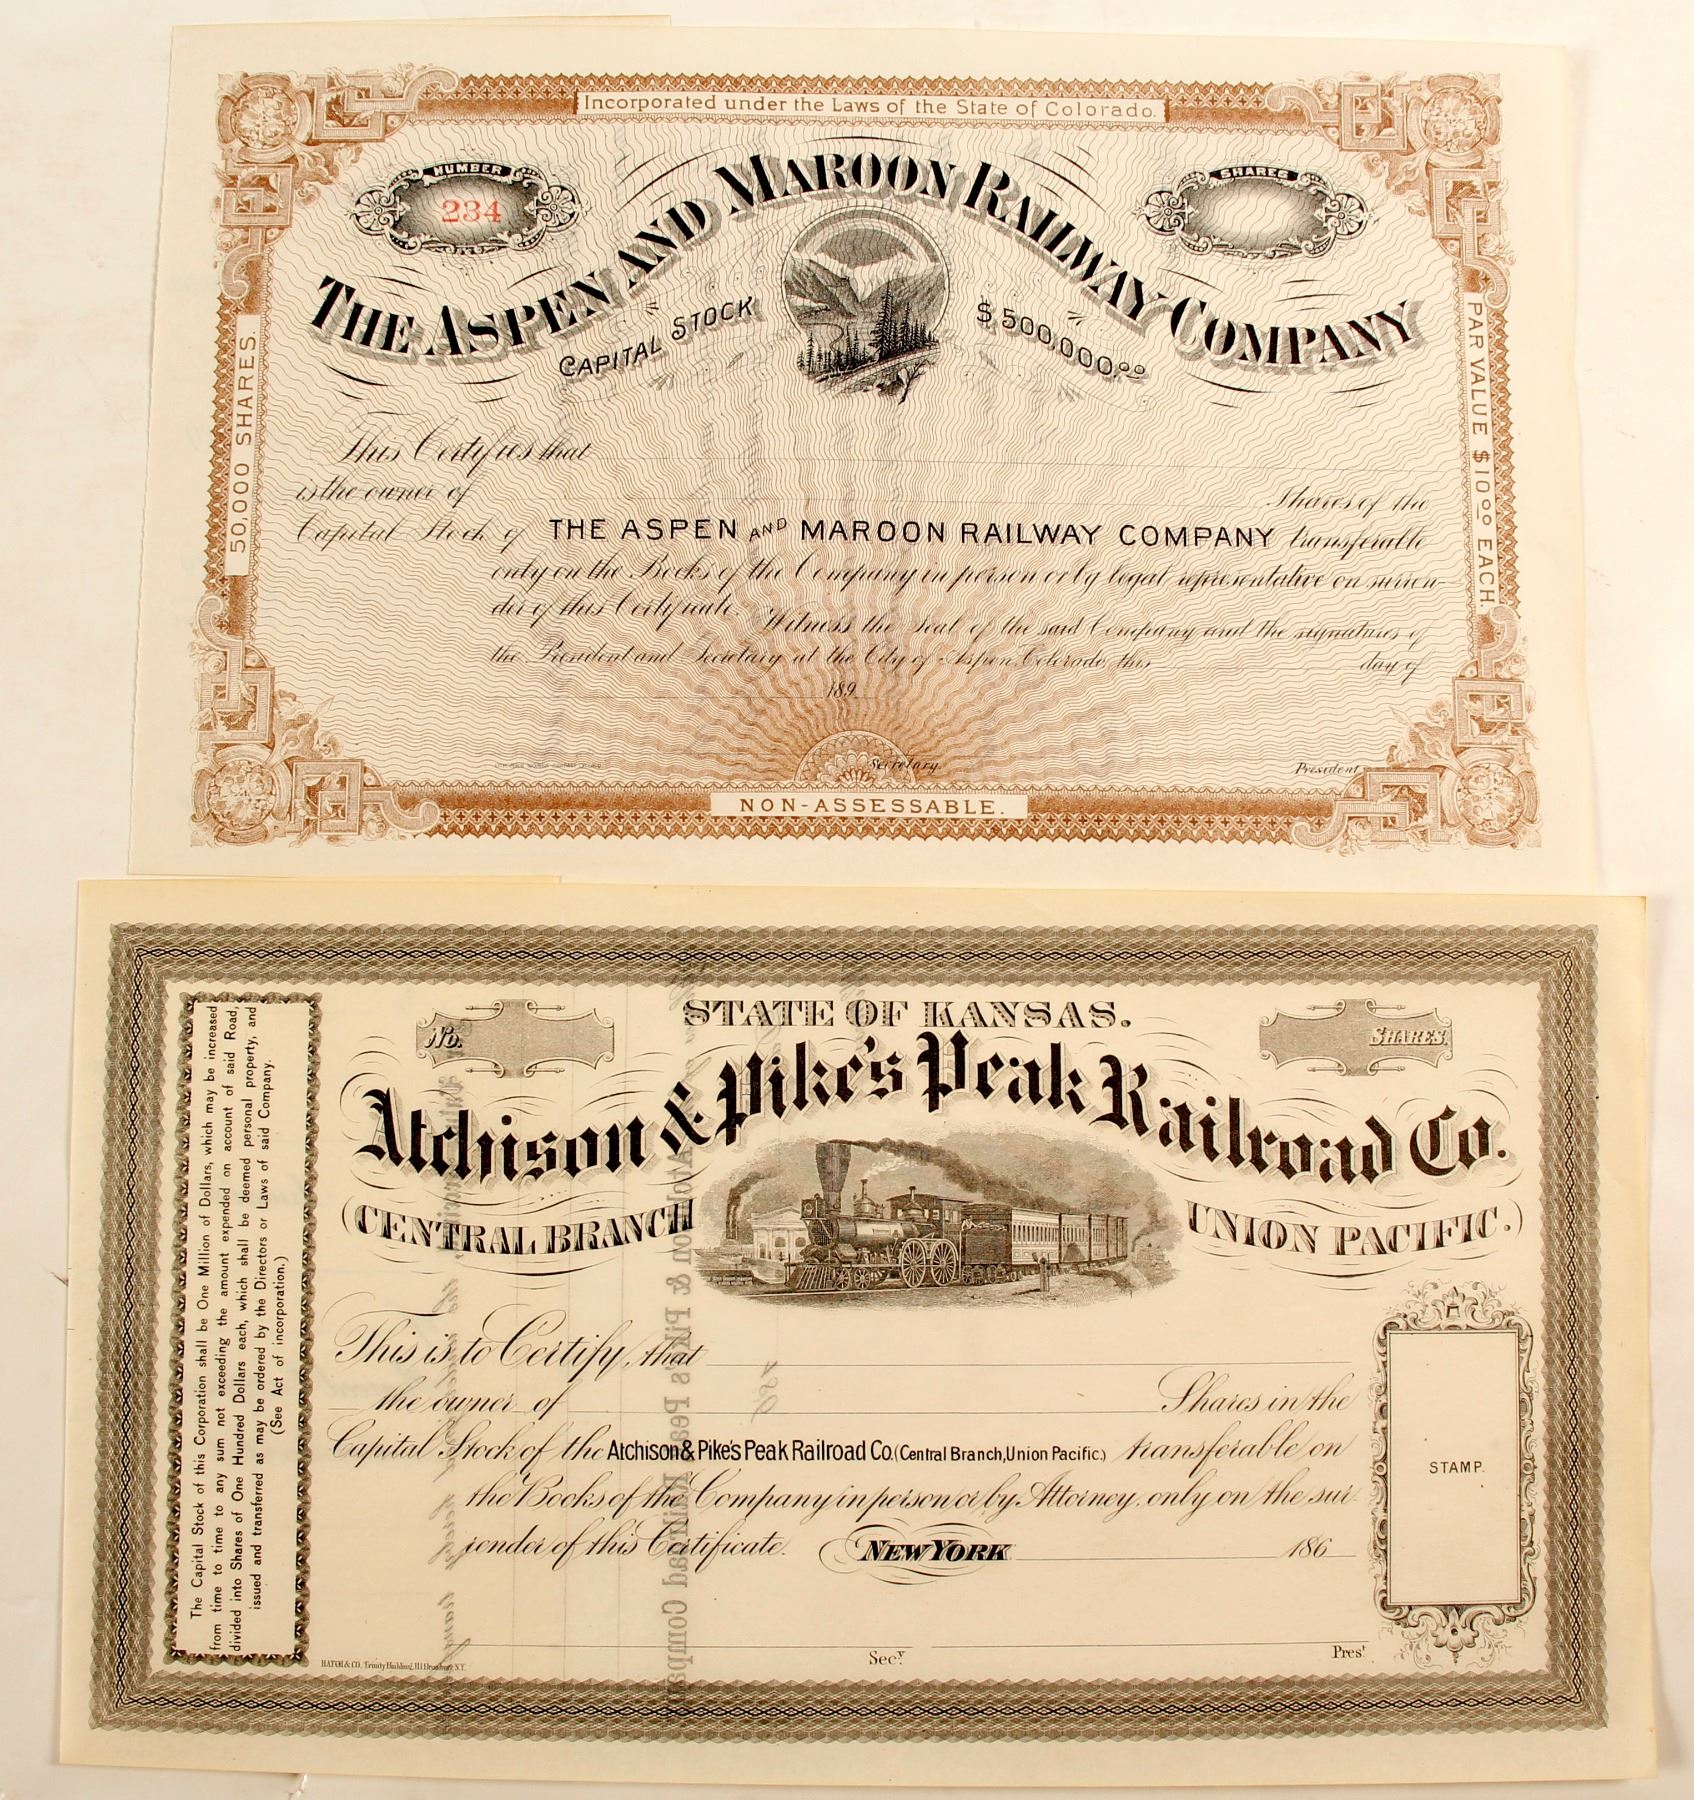 Incorporated under the Laws of the State of Colorado.
NUMBER
234
SHARES
THE ASPEN AND MAROON RAILWAY COMPANY
CAPITAL STOCK $500,000.00
50,000 SHARES.
PAR VALUE $10.00 EACH.
This Certifies that
is the owner of Shares of the
Capital Stock of THE ASPEN AND MAROON RAILWAY COMPANY transferable
only on the Books of the Company in person or by legal representative on surren-
der of this Certificate.
Witness the Seal of the said Company and the signatures of
the President and Secretary at the City of Aspen, Colorado, this day of
189
Secretary.
President
NON-ASSESSABLE.
The Capital Stock of this Corporation shall be One Million of Dollars, which may be increased
from time to time to any sum not exceeding the amount expended on account of said Road,
divided into Shares of One Hundred Dollars each, which shall be deemed personal property, and
issued and transferred as may be ordered by the Directors or Laws of said Company.
(See Act of incorporation.)
No.
STATE OF KANSAS.
SHARES.
Atchison & Pike's Peak Railroad Co.
(CENTRAL BRANCH UNION PACIFIC.)
This is to Certify, that
the owner of Shares in the
Capital Stock of the Atchison & Pike's Peak Railroad Co. (Central Branch, Union Pacific.) transferable on
the Books of the Company in person or by Attorney, only on the sur-
render of this Certificate. NEW YORK 186
STAMP.
Secy.
Prest
HATCH & CO. Trinity Building, 111 Broadway N.Y.